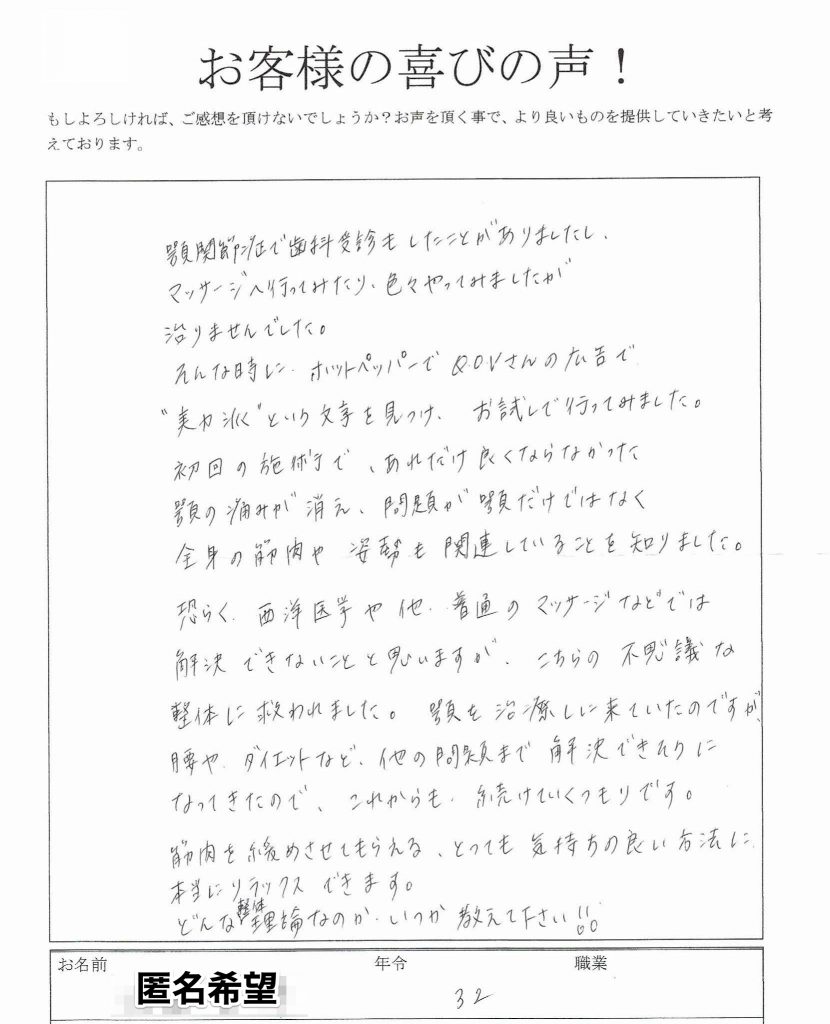 お客様の喜びの声！
もしよろしければ、ご感想を頂けないでしょうか？お声を頂く事で、より良いものを提供していきたいと考
えております。
顎関節症で歯科受診もしたことがありましたし、
マッサージへ行ってみたり、色々やってみましたが
治りませんでした。
そんな時に、ホットペッパーでQOVさんの広告で
"実力派"という文字を見つけ、お試しで行ってみました。
初回の施術で、あれだけ良くならなかった
顎の痛みが消え、問題が顎だけではなく
全身の筋肉や姿勢も関連していることを知りました。
恐らく、西洋医学や他、普通のマッサージなどでは
解決できないことと思いますが、こちらの不思議な
整体に救われました。顎を治療しに来ていたのですが、
腰や、ダイエットなど、他の問題まで解決できそうに
なってきたので、これからも、続けていくつもりです。
筋肉を緩めさせてもらえる、とっても気持ちの良い方法に、
本当にリラックスできます。
どんな整体理論なのか、いつか教えて下さい!!
お名前 年令 職業
匿名希望 32